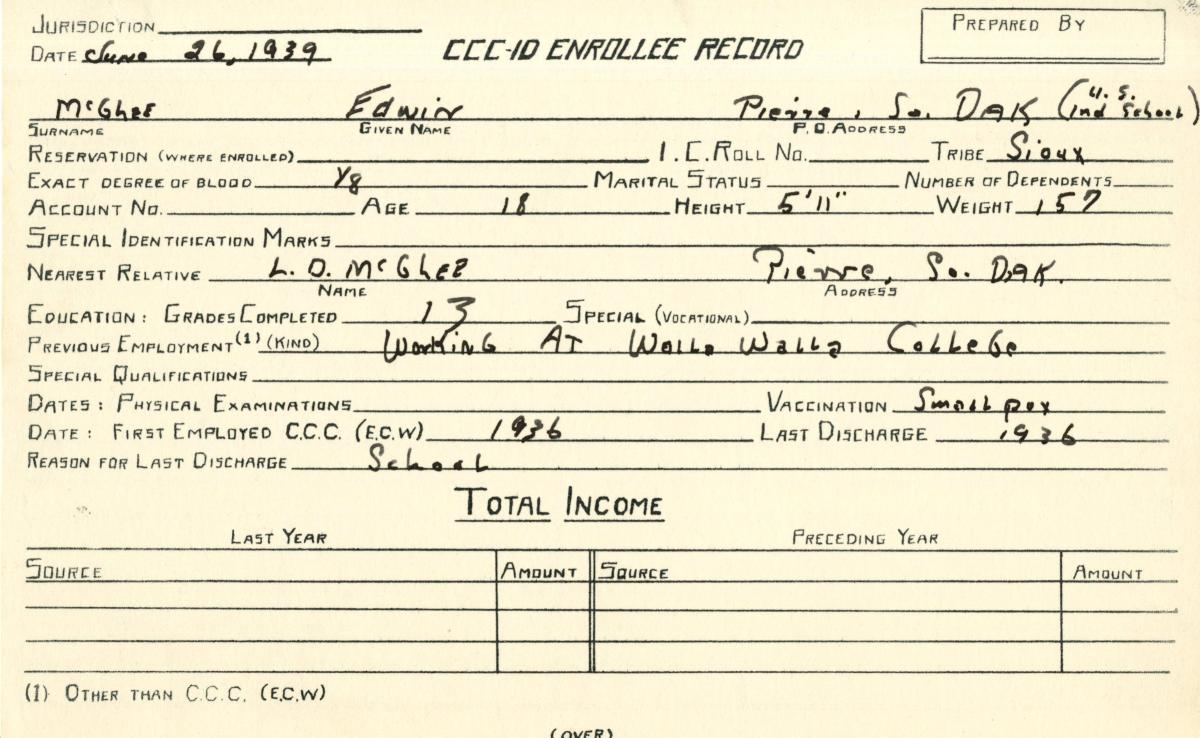 JURISDICTION
PREPARED BY
DATE June 26, 1939 CCC-ID ENROLLEE RECORD
McGhee Edwin Pierre, So. Dak (U.S. Ind School)
SURNAME GIVEN NAME P.O. ADDRESS
RESERVATION (WHERE ENROLLED) I.C. ROLL NO. TRIBE Sioux
EXACT DEGREE OF BLOOD 1/8 MARITAL STATUS NUMBER OF DEPENDENTS
ACCOUNT NO. AGE 18 HEIGHT 5'11" WEIGHT 157
SPECIAL IDENTIFICATION MARKS
NEAREST RELATIVE L. D. McGhee Pierre, So. Dak.
NAME ADDRESS
EDUCATION: GRADES COMPLETED 13 SPECIAL (VOCATIONAL)
PREVIOUS EMPLOYMENT (1) (KIND) Working At Walla Walla College
SPECIAL QUALIFICATIONS
DATES: PHYSICAL EXAMINATIONS VACCINATION Small pox
DATE: FIRST EMPLOYED C.C.C. (E.C.W) 1936 LAST DISCHARGE 1936
REASON FOR LAST DISCHARGE School
TOTAL INCOME
LAST YEAR PRECEDING YEAR
SOURCE AMOUNT SOURCE AMOUNT
(1) OTHER THAN C.C.C. (E.C.W)
(OVER)